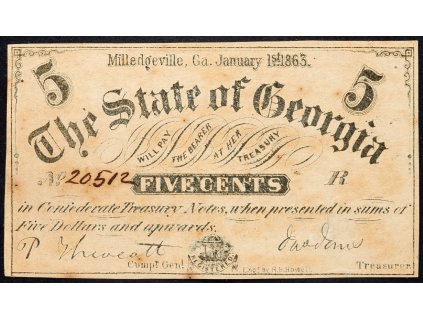 Milledgeville, Ga. January 1st 1863.
5 5
The State of Georgia
WILL PAY THE BEARER AT HER TREASURY
No 20512 FIVE CENTS R
in Confederate Treasury Notes, when presented in sums of
Five Dollars and upwards.
Compt Genl. REGISTERED Treasurer
Eng. by R.H. Howell